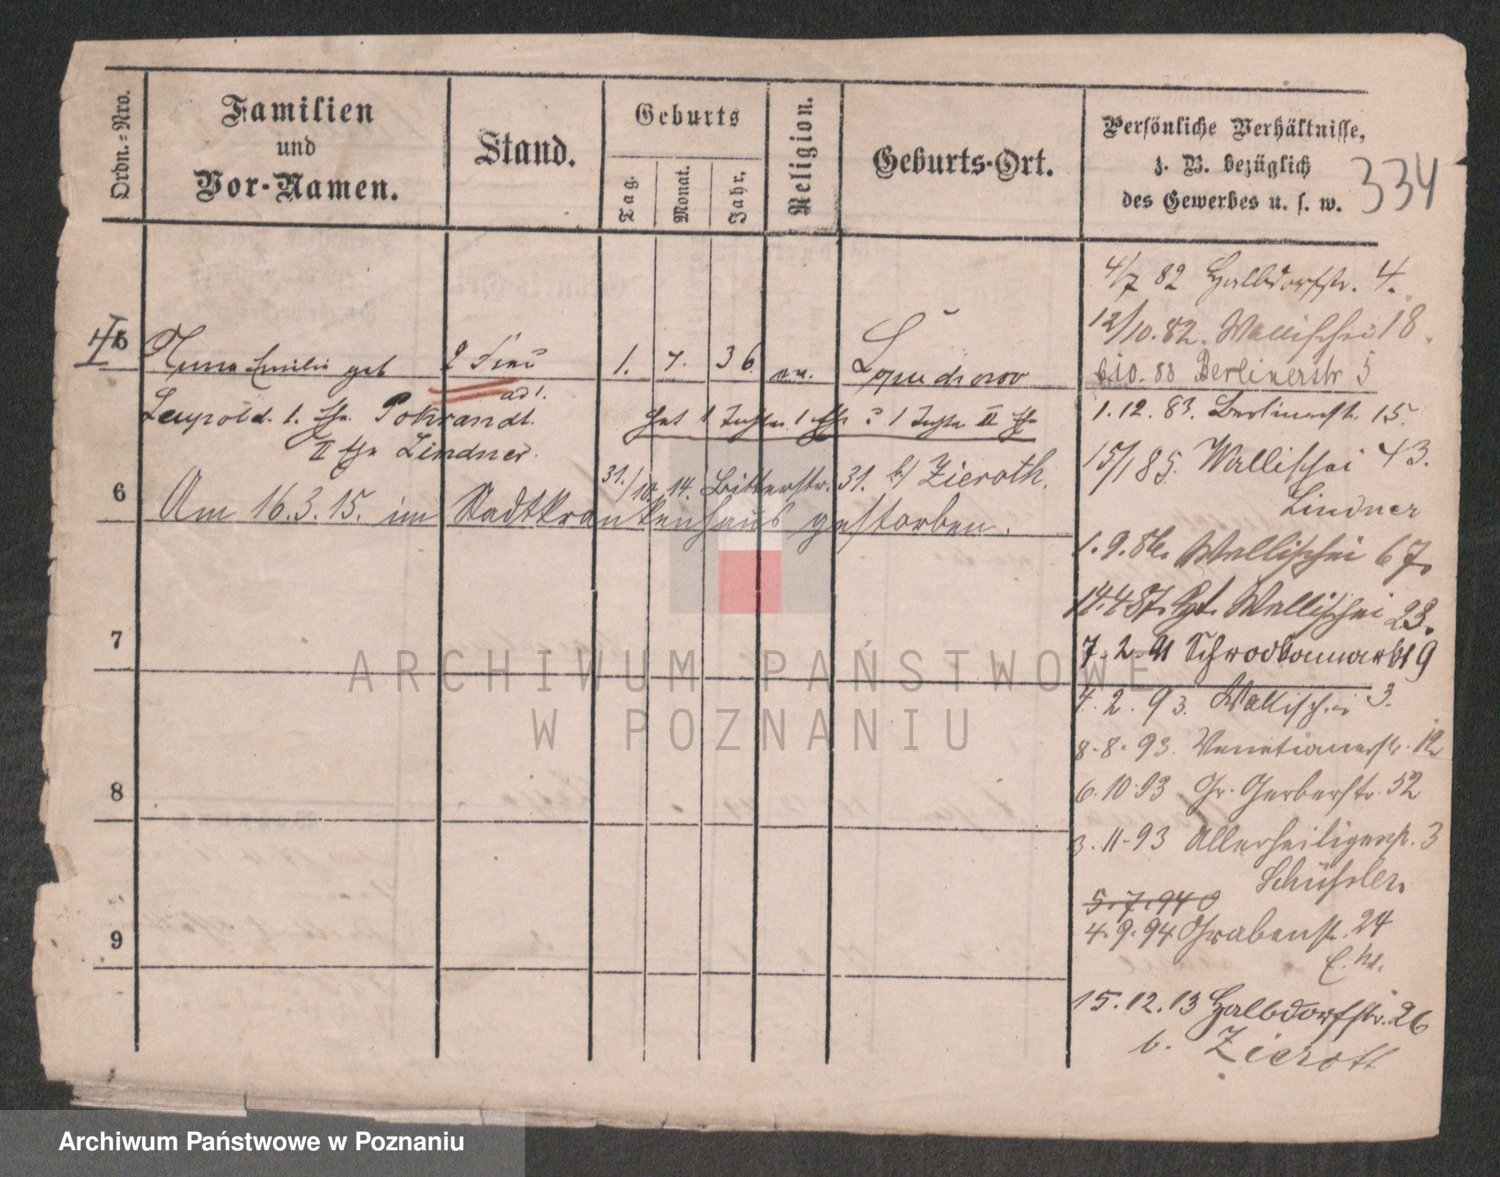 Ordn.-Nro.
Familien
und
Vor-Namen.
Stand.
Geburts
Tag.
Monat.
Jahr.
Religion.
Geburts-Ort.
Persönliche Verhältnisse,
z. B. bezüglich
des Gewerbes u. s. w.
334
4/7 82 Halbdorfstr. 4.
12/10.82. Wallischei 18.
6.10.83 Berlinerstr 5
1.12.83. Berlinerstr. 15.
15/1 85. Wallischei 43.
Lindner
1.9.86. Wallischei 67.
14.4 87. Wallischei 23.
7.2.91 Schrodkamarkt 9
4.2.93. Wallischei 3.
8.8.93. Venetianerstr. 12
6.10.93 Gr. Gerberstr. 52
3.11.93 Allerheiligenstr. 3
Schüssler.
5.7.94
4.9.94 Grabenstr. 24
15.12.13 Halbdorfstr. 26
b. Zieroth
5
Anna Emilie geb
2 Frau
1. 7. 36 ev.
ad 1.
Leupold. 1. Ehe Pokrandt.
hat 1 Tochter 1 Ehe u 1 Tochter II Ehe
II Ehe Lindner.
31./10. 14. Bitterstr. 31. b/ Zieroth.
6
Am 16.3.15. im Stadtkrankenhaus gestorben.
7
8
9
ARCHIWUM PAŃSTWOWE
W POZNANIU
Archiwum Państwowe w Poznaniu